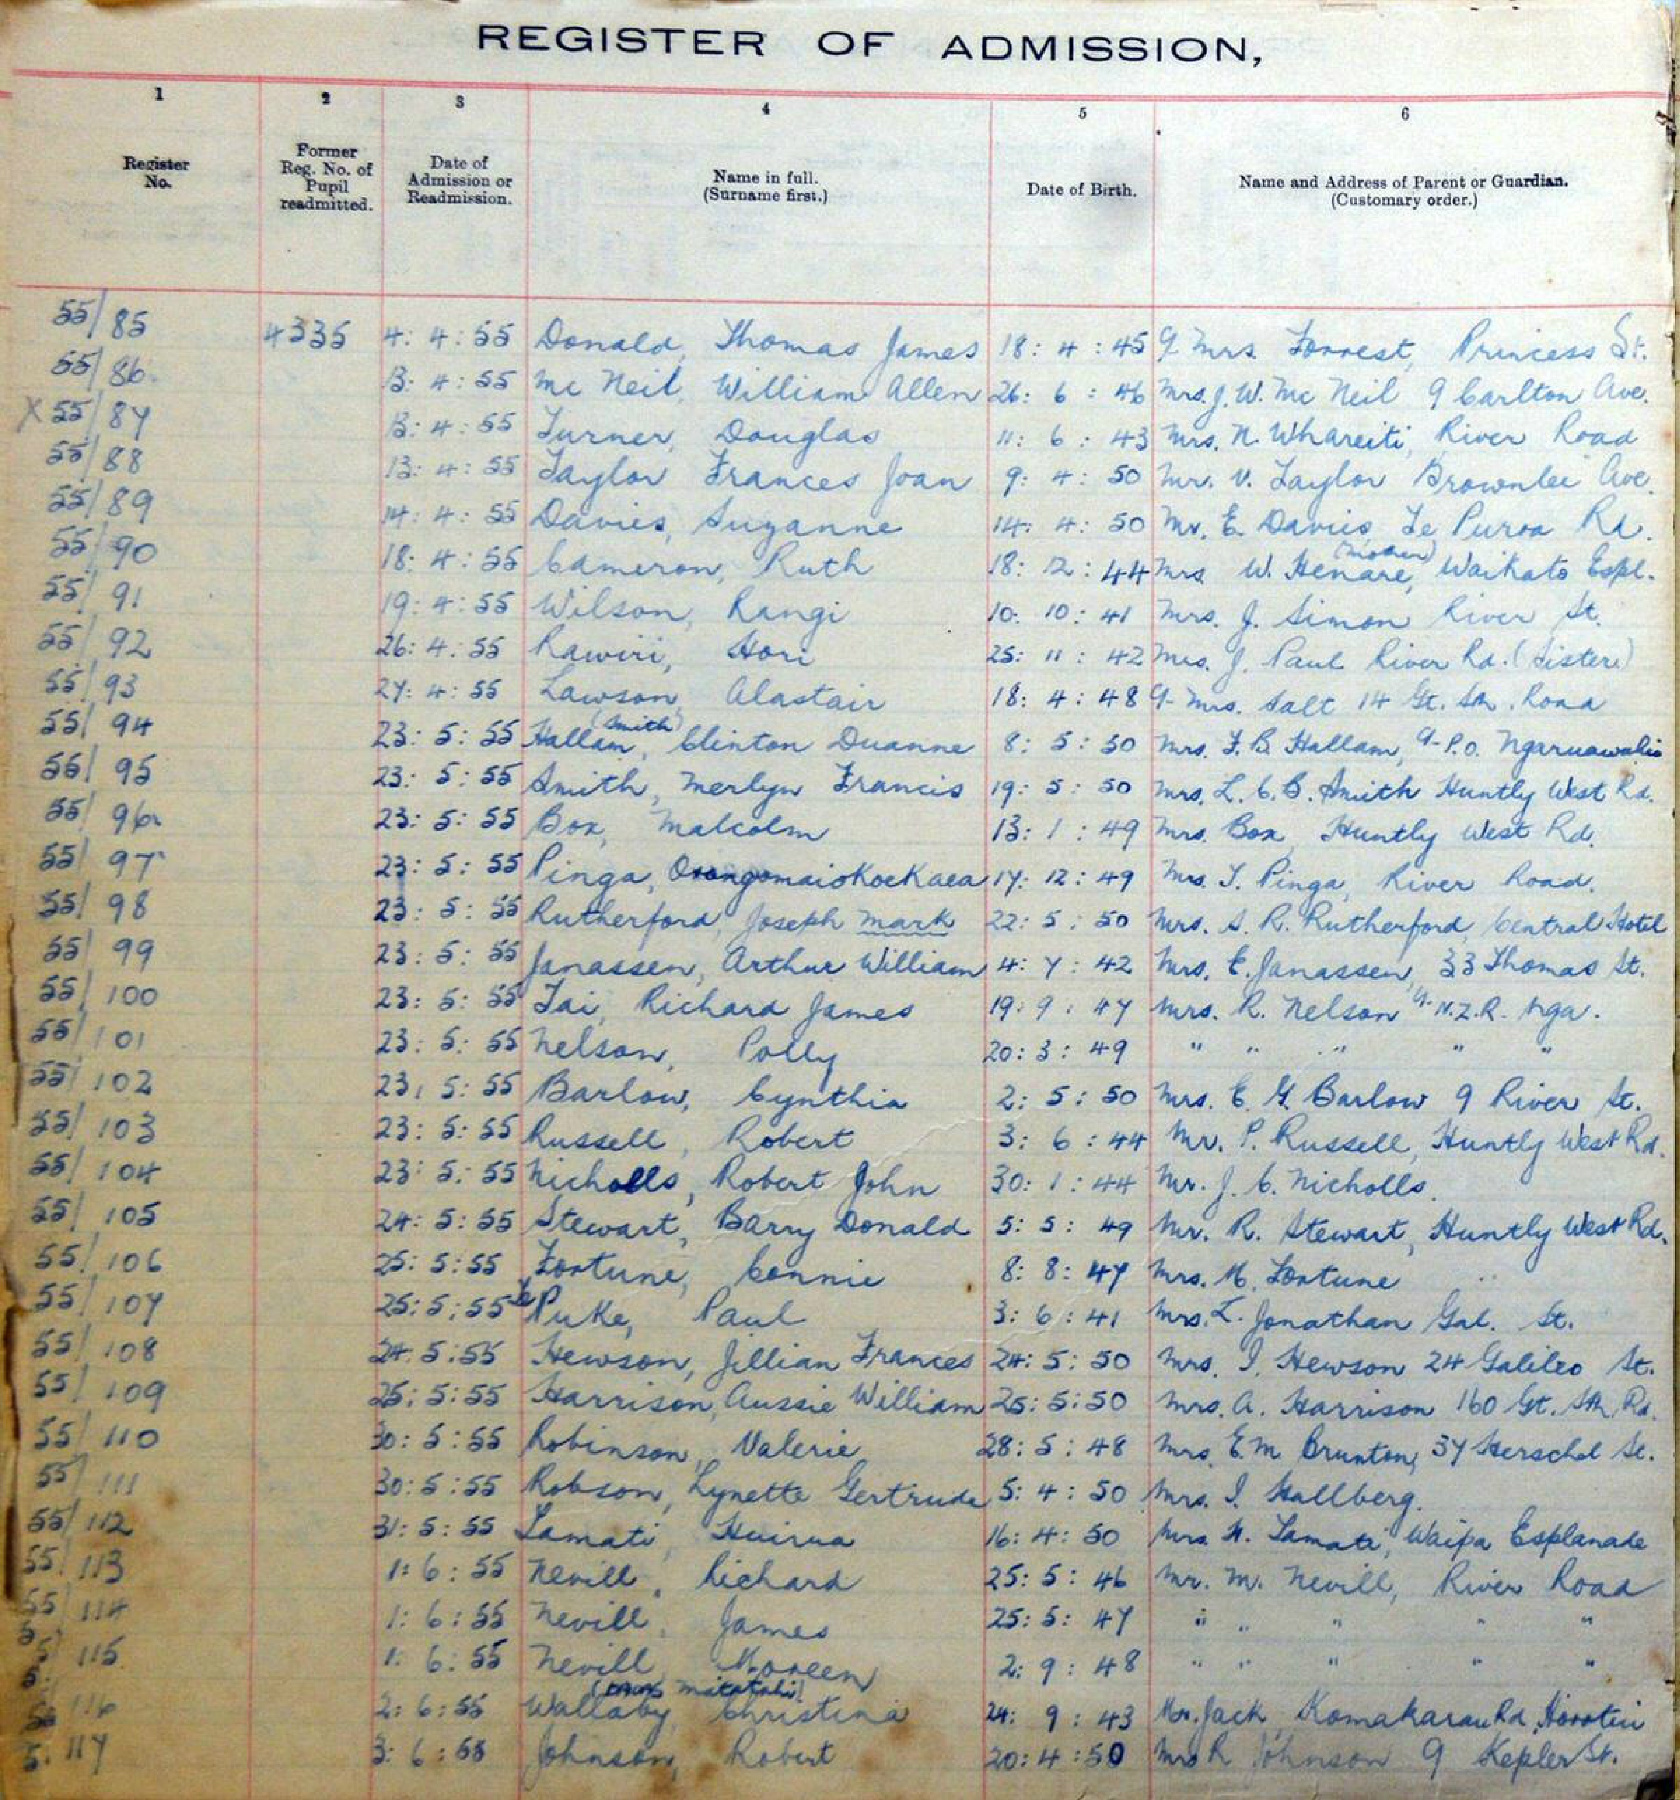 REGISTER OF ADMISSION,
1 2 3 4 5 6
Register No.
Former Reg. No. of Pupil readmitted.
Date of Admission or Readmission.
Name in full. (Surname first.)
Date of Birth.
Name and Address of Parent or Guardian. (Customary order.)
55/85 4335 4:4:55 Donald, Thomas James 18:4:45 c/- Mrs. Forrest, Princess St.
55/86 13:4:55 Mc Neil, William Allen 26:6:46 Mrs. J. W. Mc Neil 9 Carlton Ave.
X 55/87 13:4:55 Turner, Douglas 11:6:43 Mrs. N. Whareiti, River Road
55/88 13:4:55 Taylor Frances Joan 9:4:50 Mr. V. Taylor Brownlee Ave.
55/89 14:4:55 Davies, Suzanne 14:4:50 Mr. E. Davies, Te Puroa Rd.
55/90 18:4:55 Cameron, Ruth 18:12:44 Mrs W. Henare, (mother) Waikato Espl.
55/91 19:4:55 Wilson, Rangi 10:10:41 Mrs. J. Simon River St.
55/92 26:4:55 Rawiri, Hori 25:11:42 Mrs. J. Paul River Rd. (Sister)
55/93 27:4:55 Lawson, Alastair 18:4:48 c/- Mrs. Salt 14 Gt. Sth. Road
55/94 23:5:55 Hallam, (Smith) Clinton Duanne 8:5:50 Mrs. F. B. Hallam, c/- P.O. Ngaruawahia
55/95 23:5:55 Smith, Merlyn Francis 19:5:50 Mrs. L. C. B. Smith Huntly West Rd.
55/96 23:5:55 Box, Malcolm 13:1:49 Mrs. Box, Huntly West Rd.
55/97 23:5:55 Pinga, 17:12:49 Mrs. T. Pinga, River Road.
55/98 23:5:55 Rutherford, Joseph Mark 22:5:50 Mrs. S. R. Rutherford, Central Hotel
55/99 23:5:55 Janassen, Arthur William 4:7:42 Mrs. E. Janassen, 33 Thomas St.
55/100 23:5:55 Tai, Richard James 19:9:47 Mrs. R. Nelson c/- N.Z.R. Nga.
55/101 23:5:55 Nelson, Polly 20:3:49 " " " " "
55/102 23:5:55 Barlow, Cynthia 2:5:50 Mrs. E. G. Barlow 9 River St.
55/103 23:5:55 Russell, Robert 3:6:44 Mr. P. Russell, Huntly West Rd.
55/104 23:5:55 Nicholls, Robert John 30:1:44 Mr. J. C. Nicholls.
55/105 24:5:55 Stewart, Barry Donald 5:5:49 Mr. R. Stewart, Huntly West Rd.
55/106 25:5:55 Fortune, Connie 8:8:47 Mrs. M. Fortune
55/107 25:5:55 Te Puke, Paul 3:6:41 Mrs. L. Jonathan Gal. St.
55/108 24:5:55 Hewson, Jillian Frances 24:5:50 Mrs. I. Hewson 24 Galileo St.
55/109 25:5:55 Harrison, Aussie William 25:5:50 Mrs. A. Harrison 160 Gt. Sth. Rd.
55/110 30:5:55 Robinson, Valerie 28:5:48 Mrs. E. M Brunton, 37 Herschel St.
55/111 30:5:55 Robson, Lynette Gertrude 5:4:50 Mrs. I. Hallberg.
55/112 31:5:55 Tamati, Huirua 16:4:50 Mrs. H. Tamati, Waipa Esplanade
55/113 1:6:55 Nevill, Richard 25:5:46 Mr. M. Nevill, River Road
55/114 1:6:55 Nevill, James 25:5:47 " " " " "
55/115 1:6:55 Nevill, Moreen 2:9:48 " " " " "
116 2:6:55 Wallaby, Christina 24:9:43 Mr. Jack Komakarau Rd, Horotiu
117 3:6:55 Johnson, Robert 20:4:50 Mrs R Johnson 9 Kepler St.